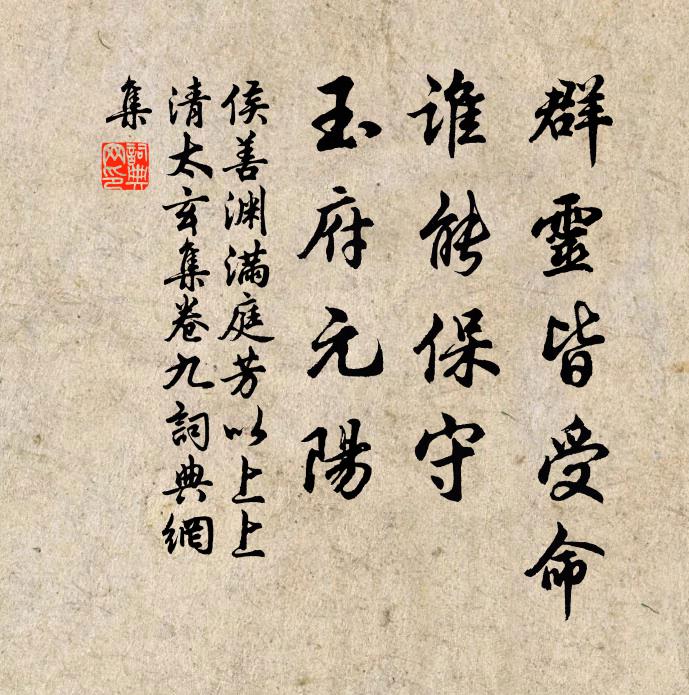 群靈皆受命
誰能保守
玉府元陽
侯善渊滿庭芳以上上
清太玄集卷九詞典網
集
詞典網印